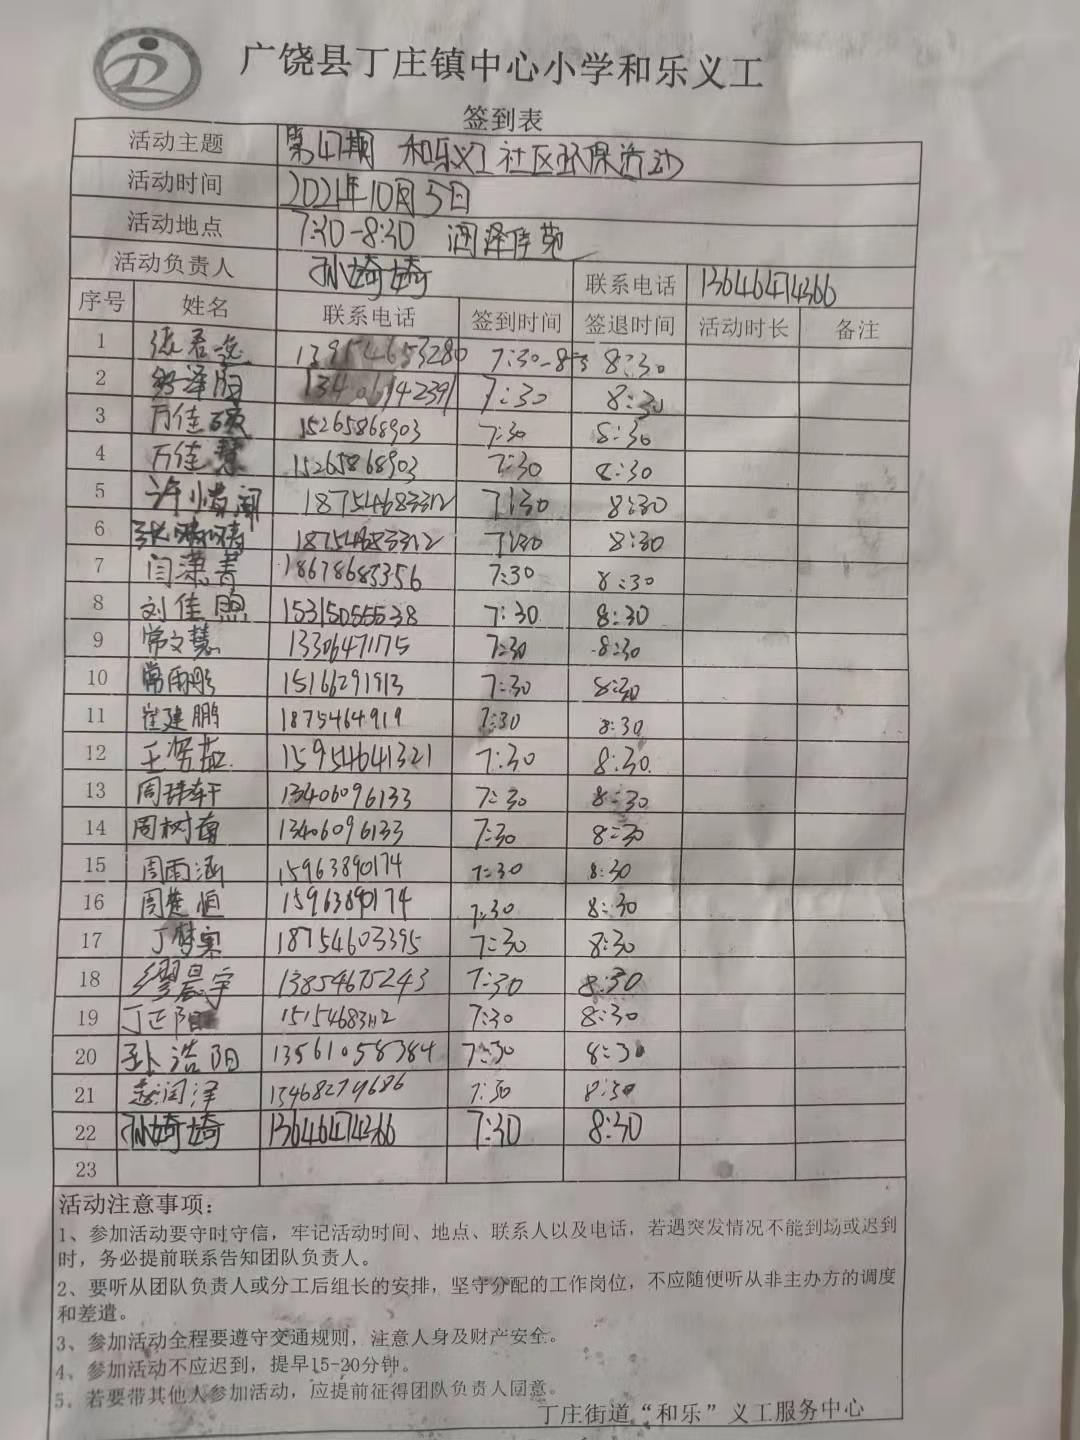 广饶县丁庄镇中心小学和乐义工
签到表
活动主题 第47期 和乐义工社区环保活动
活动时间 2021年10月5日
活动地点 7:30-8:30 润泽佳苑
活动负责人 孙婍婍 联系电话 13646474366
序号 姓名 联系电话 签到时间 签退时间 活动时长 备注
1 张君逸 13954653280 7:30-8:3 8:30
2 泽阳 13406142391 7:30 8:30
3 万佳硕 15265868903 7:30 8:30
4 万佳慧 15265868903 7:30 8:30
5 许 18754683312 7:30 8:30
6 张 18754683312 7:30 8:30
7 闫潇菁 18678683356 7:30 8:30
8 刘佳煦 15315055538 7:30 8:30
9 常文慧 13306471175 7:30 8:30
10 常雨彤 15166291913 7:30 8:30
11 崔建鹏 1875464919 7:30 8:30
12 王 15954641321 7:30 8:30
13 周轩 13406096133 7:30 8:30
14 周树 13406096133 7:30 8:30
15 周雨涵 15963890174 7:30 8:30
16 周楚恒 15963890174 7:30 8:30
17 丁梦 18754603395 7:30 8:30
18 缪晨宇 13854675243 7:30 8:30
19 丁正阳 15154683112 7:30 8:30
20 孙浩阳 13561058384 7:30 8:30
21 赵润泽 13468279686 7:30 8:30
22 孙婍婍 13646474366 7:30 8:30
23
活动注意事项：
1、参加活动要守时守信，牢记活动时间、地点、联系人以及电话，若遇突发情况不能到场或迟到
时，务必提前联系告知团队负责人。
2、要听从团队负责人或分工后组长的安排，坚守分配的工作岗位，不应随便听从非主办方的调度
和差遣。
3、参加活动全程要遵守交通规则，注意人身及财产安全。
4、参加活动不应迟到，提早15-20分钟。
5、若要带其他人参加活动，应提前征得团队负责人同意。
丁庄街道“和乐”义工服务中心